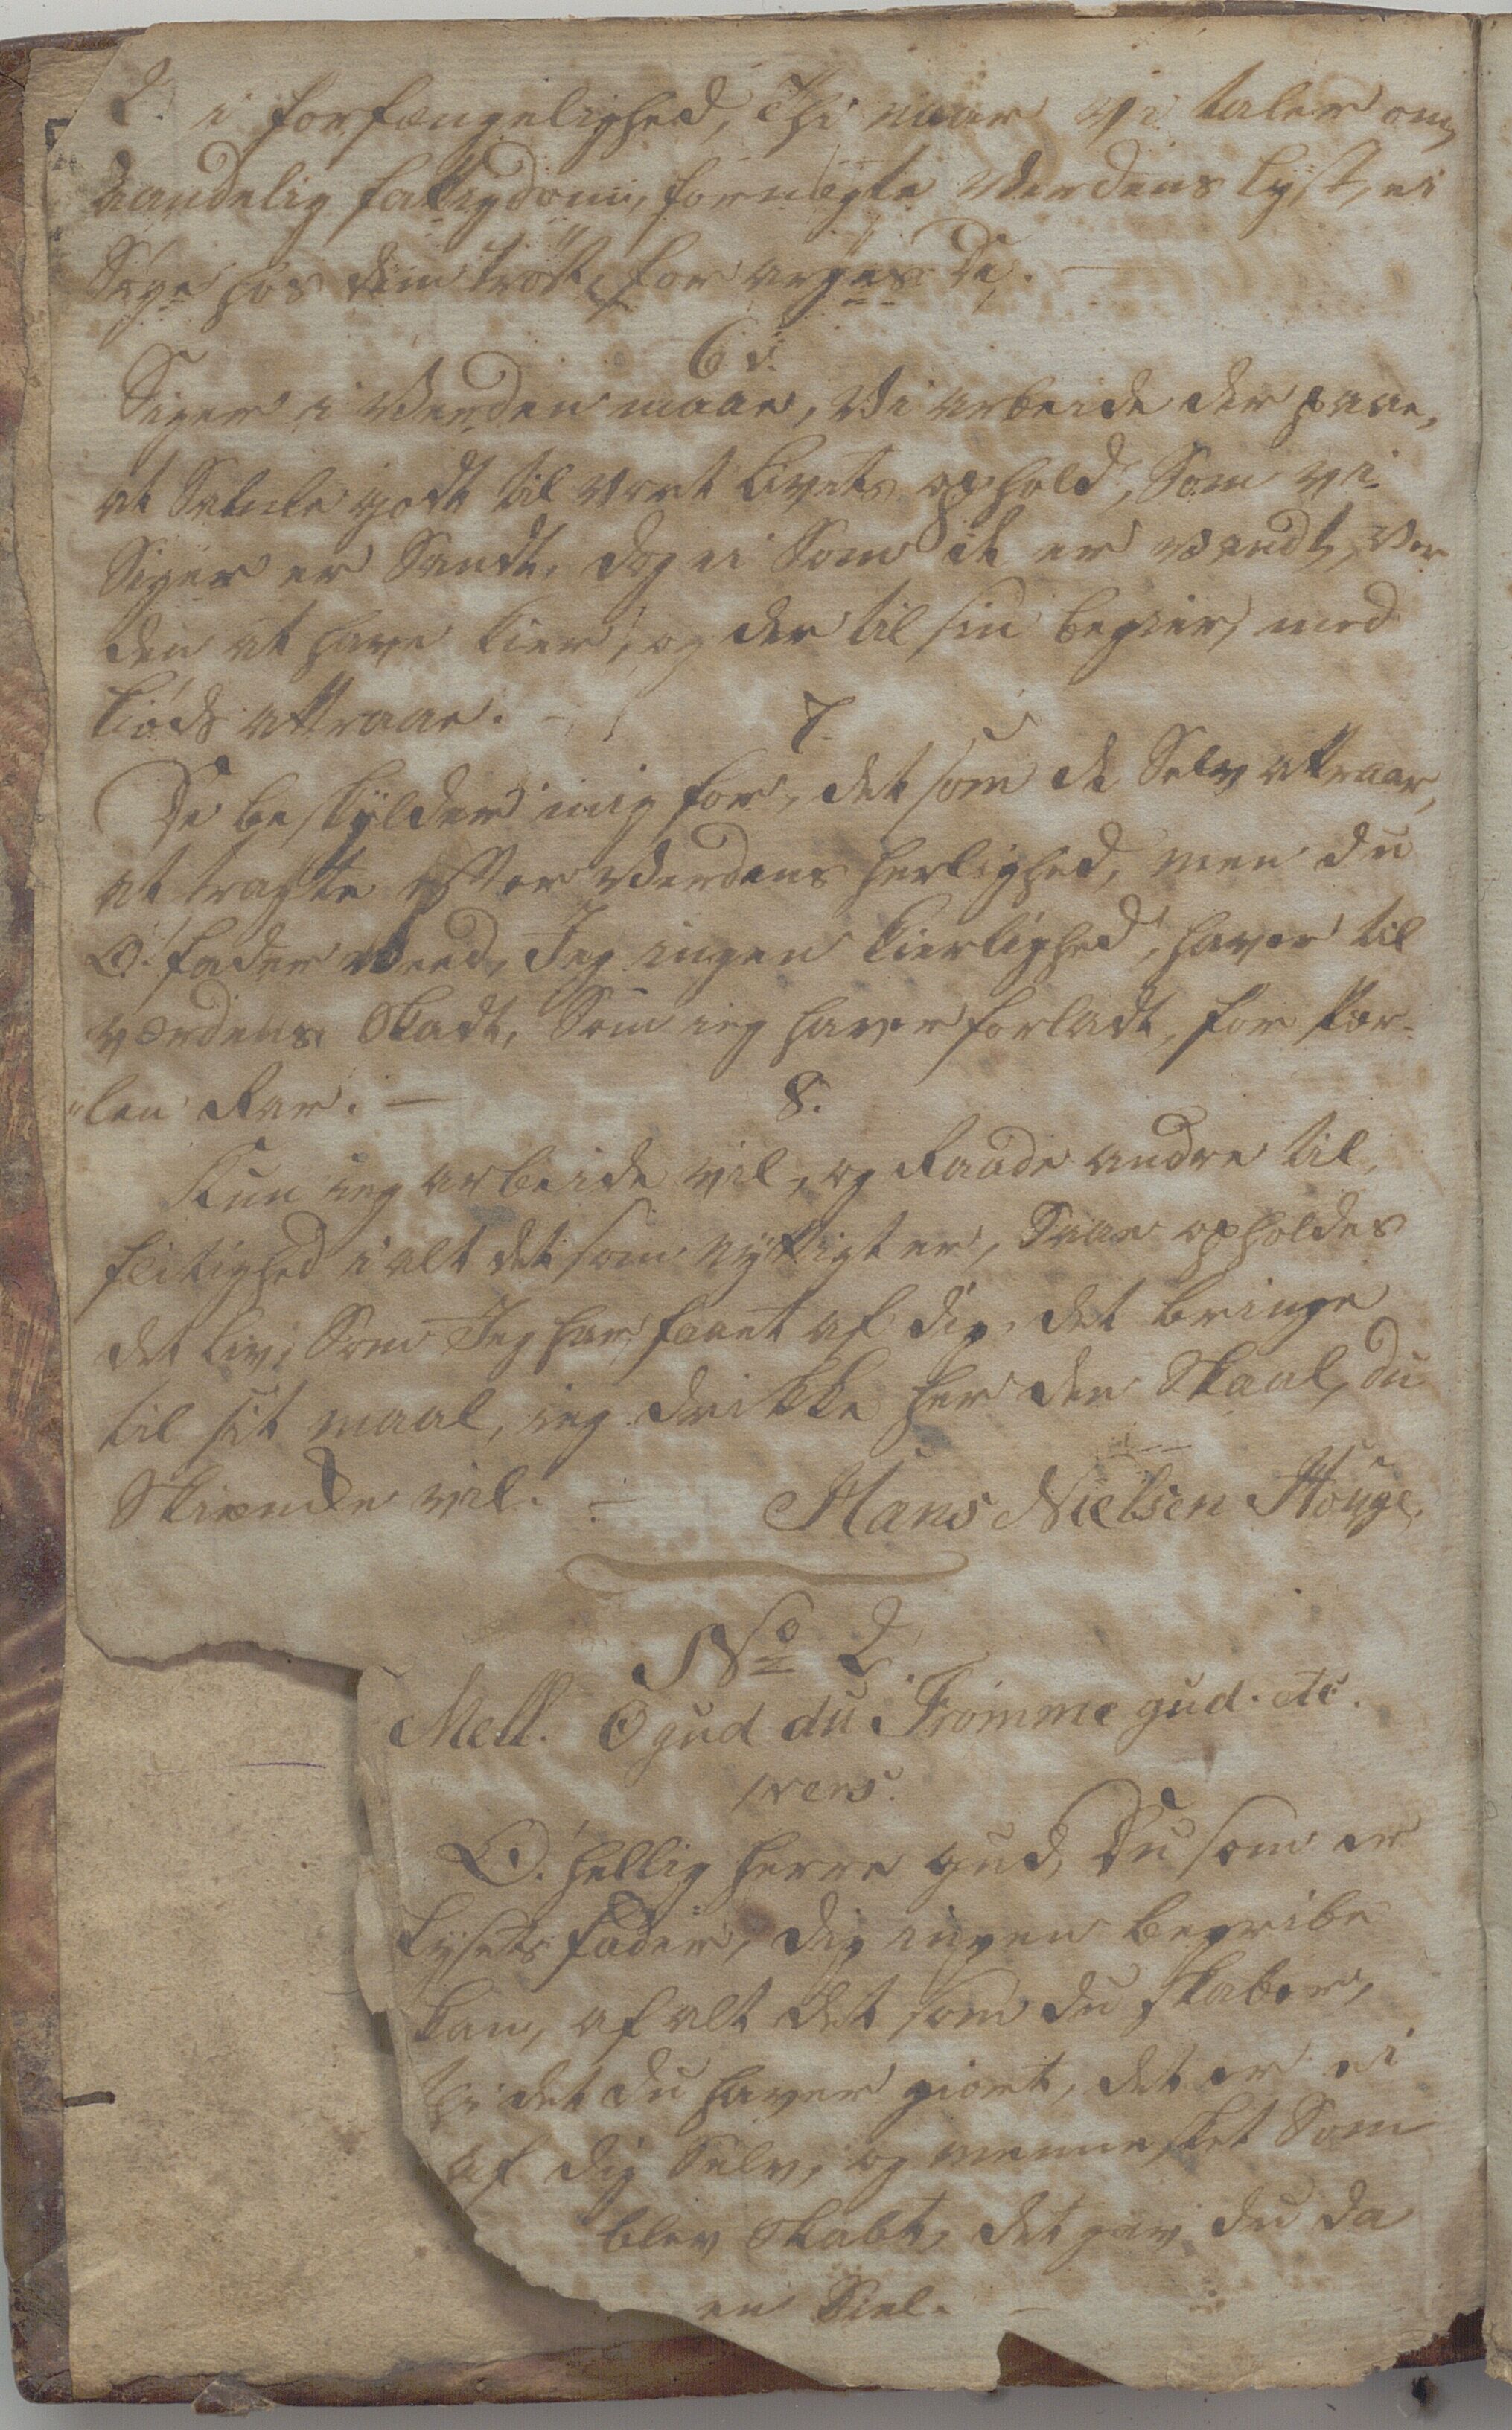 2. i forfængelighed, Thi naar vi taler om,
aandelig fattigdom, fornegte Verdens lyst, ei
Søge hos dem trøst, for arges de. —
6 v.
Siger i Verden maae, Vi arbeide der paae,
at Samle godt til vort Livets ophold, Som vi
Siger er Sandt, dog ei Som de er vandt, Ver
den at have kier, og der til sin begier, med
kiøds attraae. —
7.
De beskylder mig for, det som de Selv attraar,
at tragte efter Verdens herlighed, men du
O! fader Veed, Jeg ingen kierlighed, haver til
verdens Skadt, Som ieg haver forladt, for Per-
len Rar. —
8.
Kun ieg arbeide vil, og Raade andre til,
flitighed i alt det som nyttigt er, Saa opholdes
det liv, Som Jeg har faaet af dig, det bringe
til sit maal, ieg drikke her den Skaal, du
Skienke vil. —
Hans Nielsen Houge.
No 2
Mell. O gud du Fromme gud. etc.
1 vers.
O! hellig herre gud, Du som er
Lysets fader, dig ingen begribe
kan, af alt det som du skaber,
thi det du haver giort, det er ei
af dig Selv, og mennesket Som
blev Skabt, det gav du da
en Siel. —